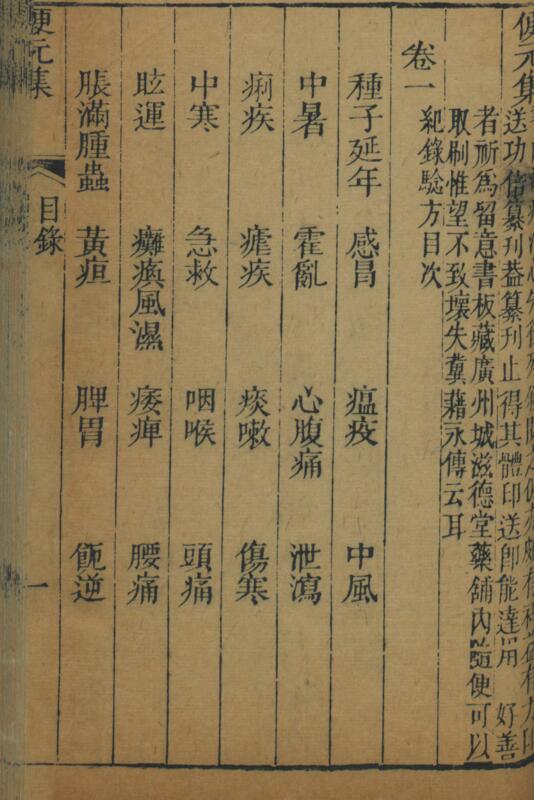 便元集
送功倍纂刊葢纂刊止得其體印送卽能達用 好善
者祈為留意書板藏廣州城滋德堂藥舖內隨便可以
取刷惟望不致壞失冀藉永傳云耳
紀錄驗方目次
卷一
種子延年 感冒 瘟疫 中風
中暑 霍亂 心腹痛 泄瀉
痢疾 瘧疾 痰嗽 傷寒
中寒 急救 咽喉 頭痛
眩運 癱瘓風濕 痿痺 腰痛
脹滿腫蟲 黃疸 脾胃 呃逆
便元集 目錄 一